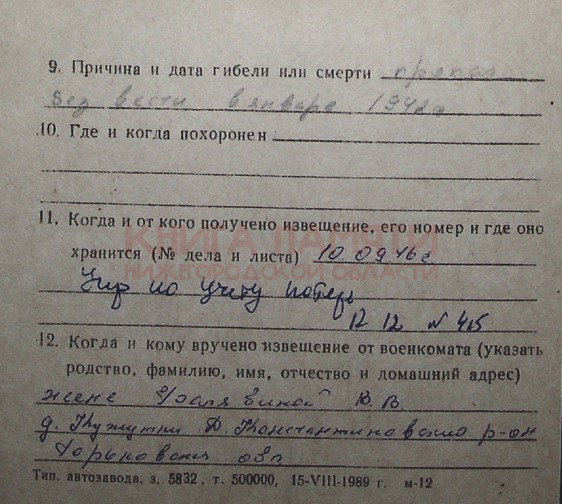 9. Причина и дата гибели или смерти пропал
без вести в январе 1942 г
10. Где и когда похоронен
11. Когда и от кого получено извещение, его номер и где оно
КНИГА ПАМЯТИ
хранится (№ дела и листа) 10.09.46 г
НИЖЕГОРОДСКОЙ ОБЛАСТИ
Упр по учету потерь
12 12 № 415
12. Когда и кому вручено извещение от военкомата (указать
родство, фамилию, имя, отчество и домашний адрес)
жене В. В.
д. Кужутки Д. Константиновского р-он
Горьковская обл
Тип. автозавода, з. 5832, т. 500000, 15-VIII-1989 г. м-12